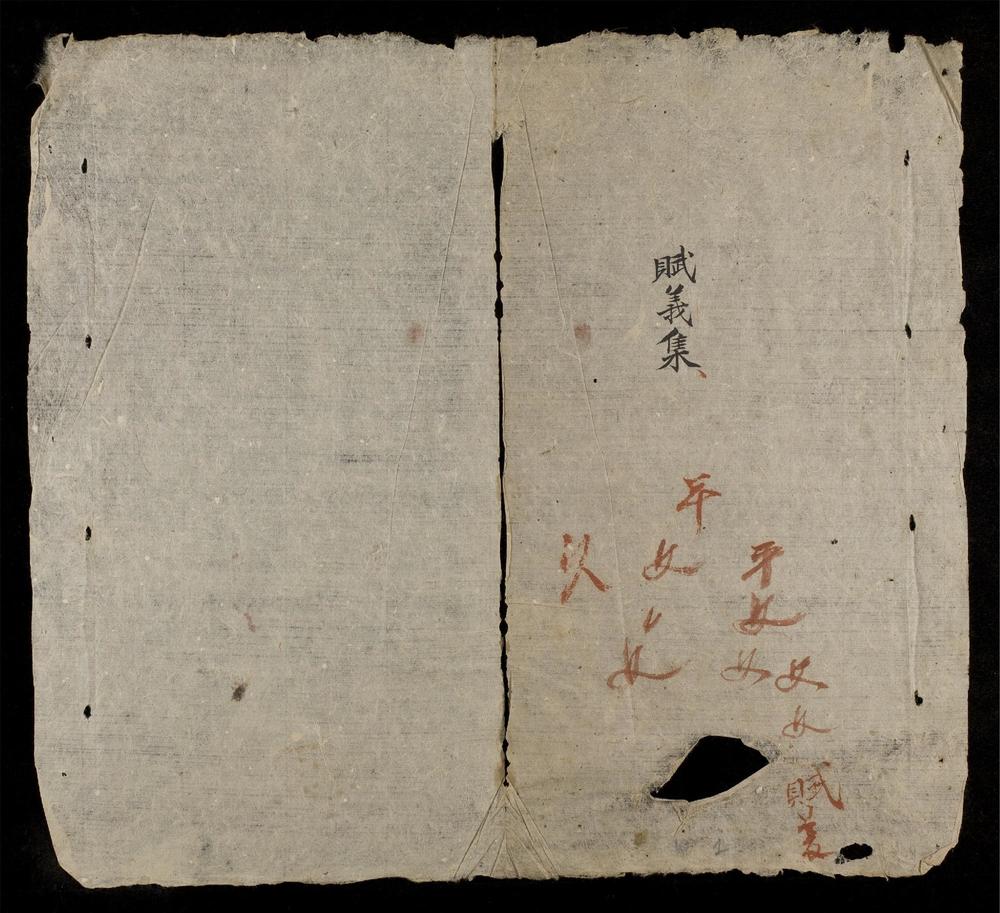 賦義集
平
女
女
平
女
女
女
女
賦